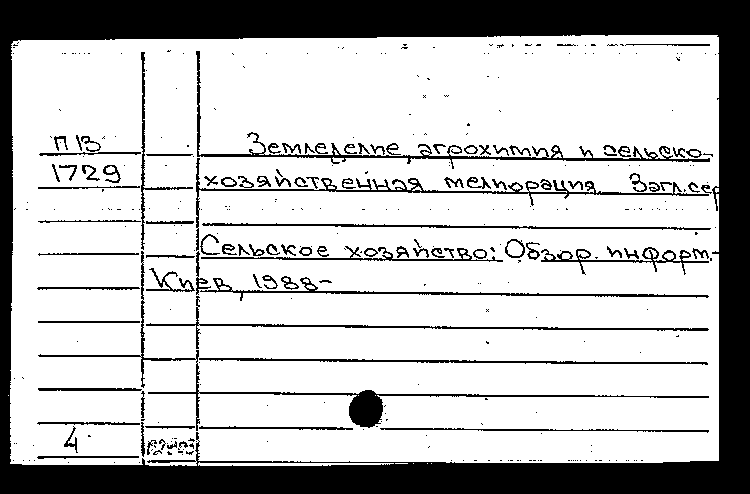 П13
1729
Земледелие, агрохимия и сельско-
хозяйственная мелиорация Загл.сер
Сельское хозяйство: Обзор. информ.-
Киев, 1988-
4